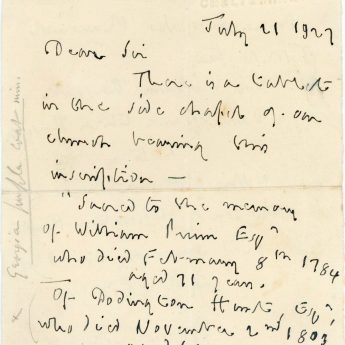 July 21 1927
Dear Sir
There is a tablet
in the side chapel of our
church bearing this
inscription —
"Sacred to the memory
of William Prinn Esqr
who died February 8th 1784
aged 71 years.
Of Dodington Hunt, Esqr
who died November 2nd 1803